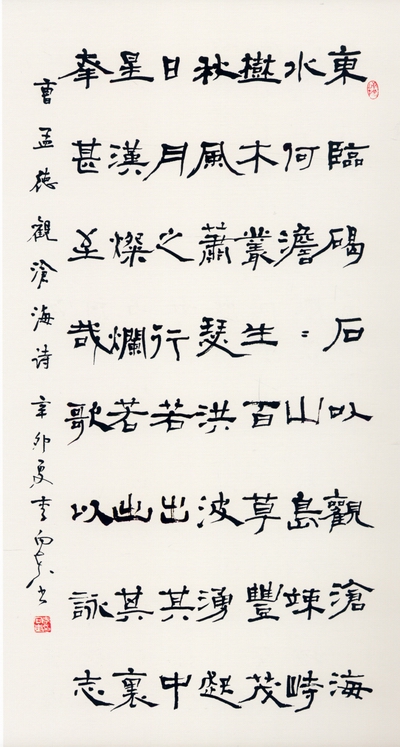 東臨碣石以觀滄海
水何澹〻山島竦峙
樹木叢生百草豐茂
秋風蕭瑟洪波湧起
日月之行若出其中
星漢燦爛若出其裏
幸甚至哉歌以詠志
曹孟德觀滄海诗辛卯夏李向书